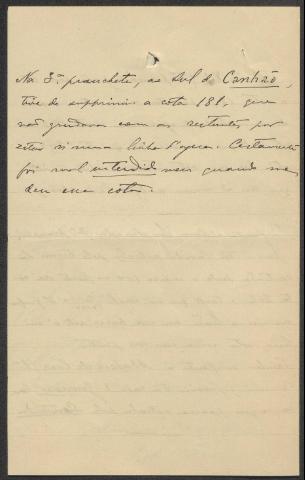 Na 3.ª prancheta, ao sul de Canhão,
tive de supprimir a cota 181, que
não quadrava com as restantes, por
estar n'uma linha d'agua. Certamente
foi mal entendido meu quando me
deu essa cota.